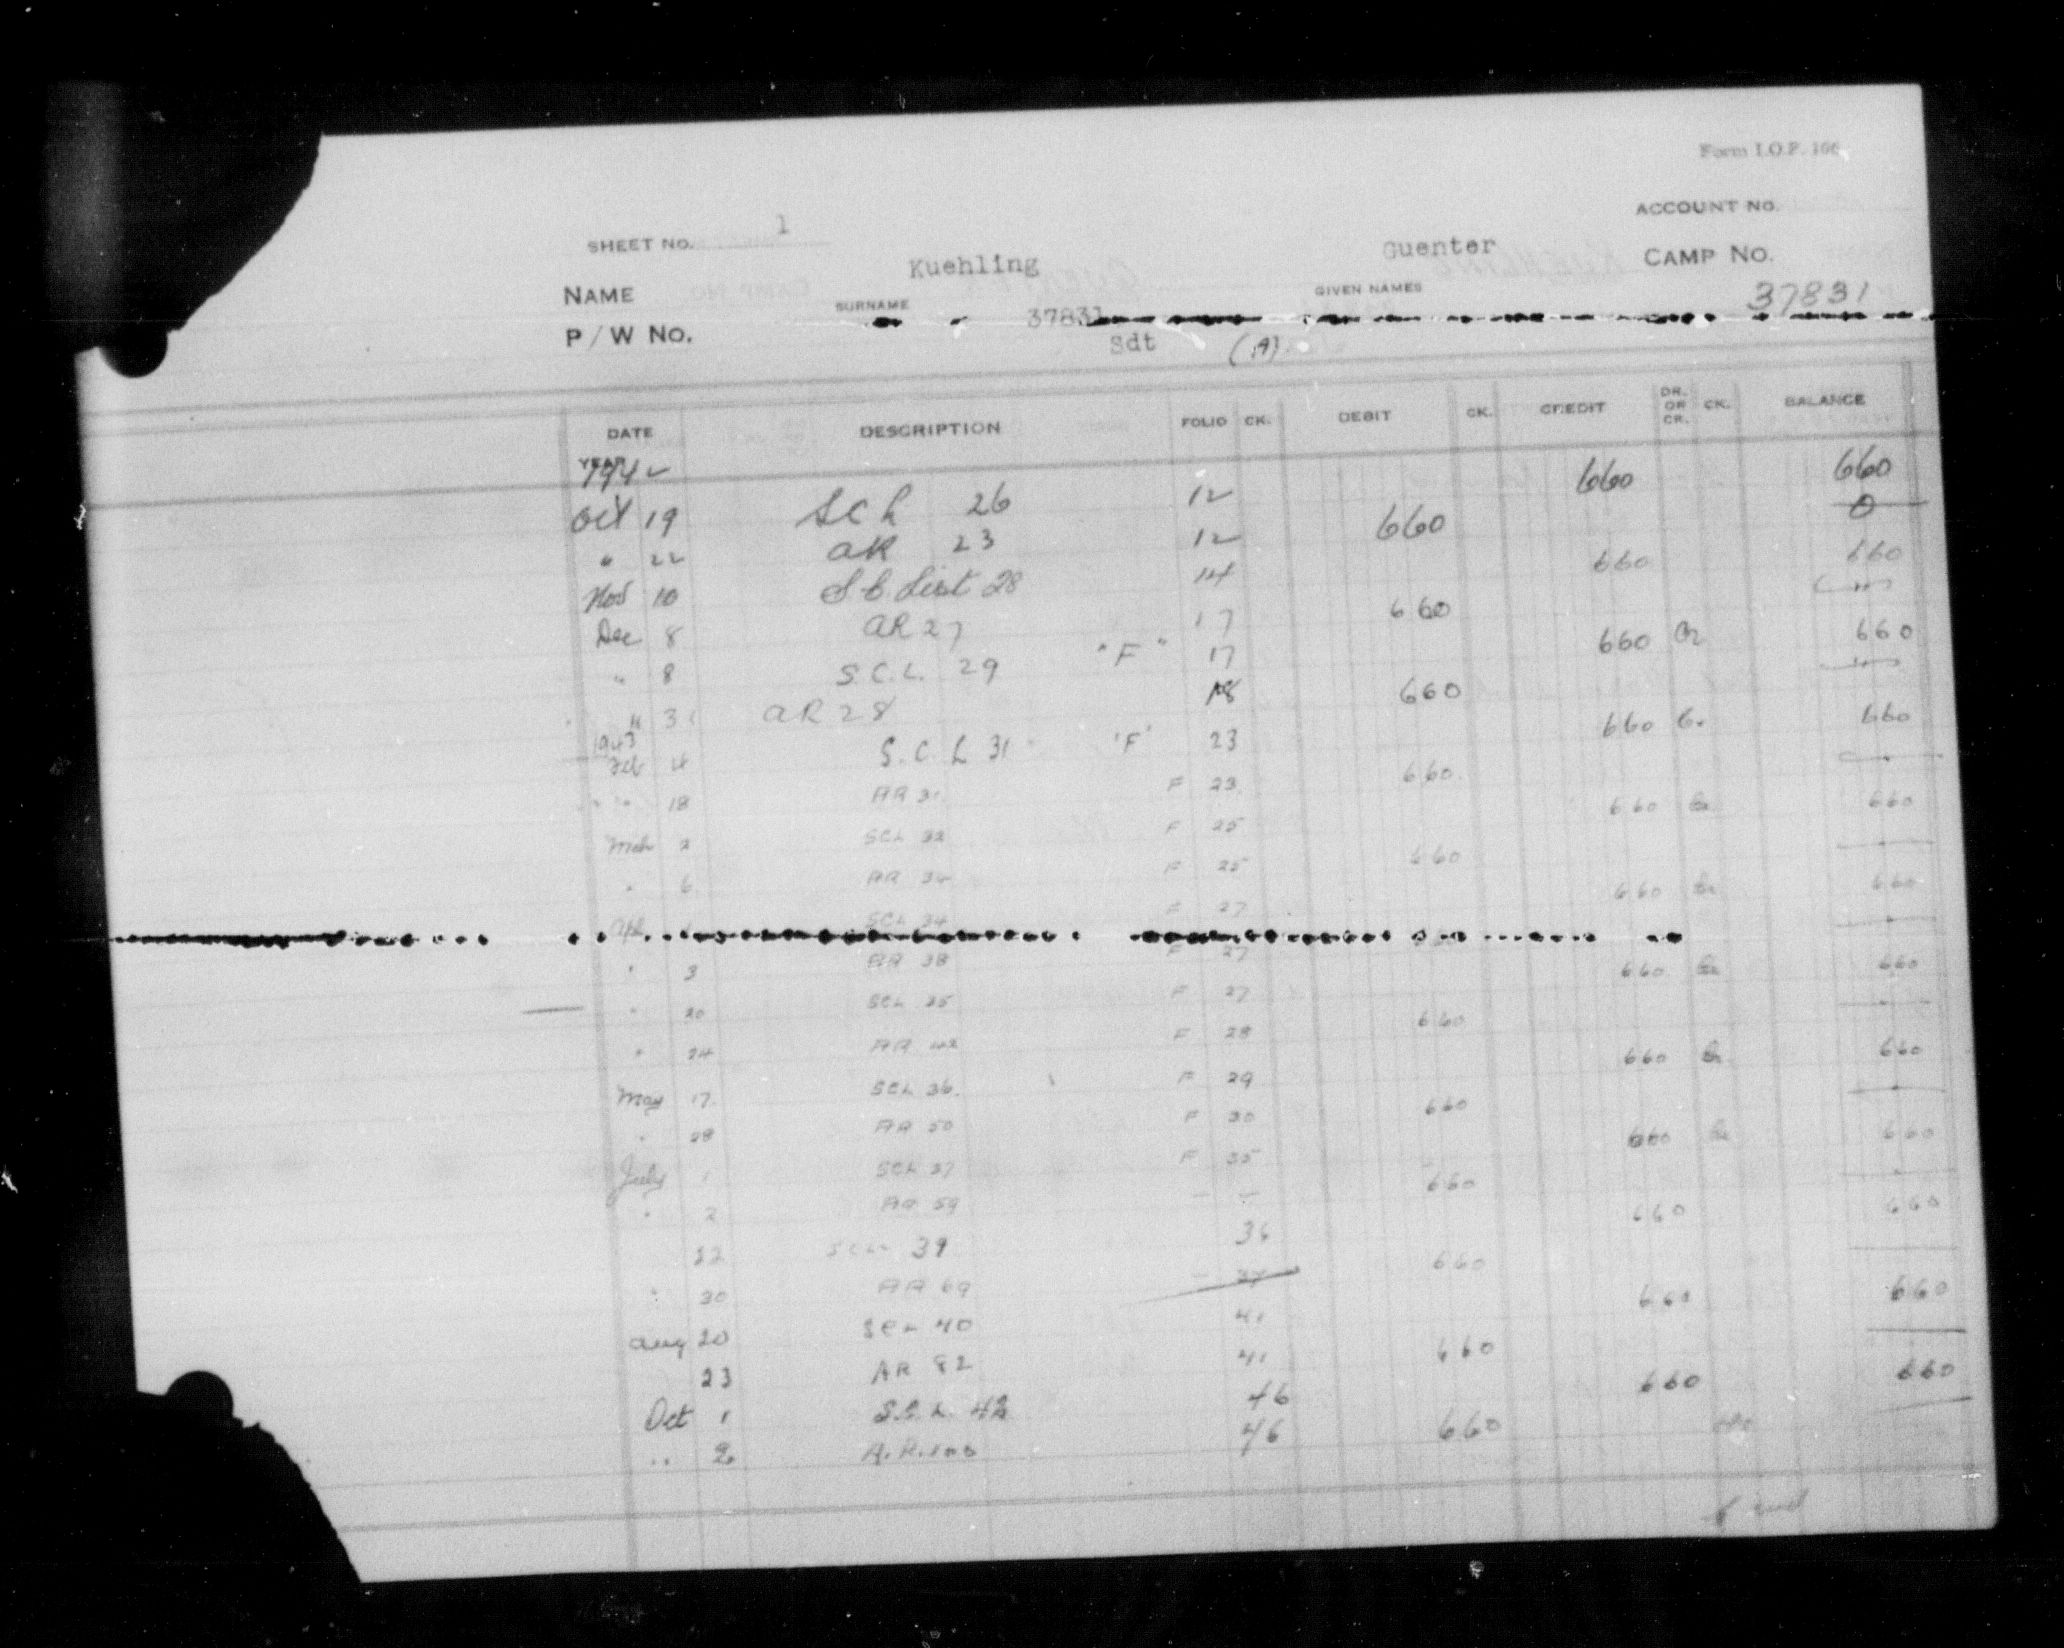 Form I.O.P. 106
SHEET NO. 1 ACCOUNT NO.
NAME Kuehling Guenter CAMP NO.
SURNAME GIVEN NAMES 37831
P/W No. 37831
Sdt (A)
DATE DESCRIPTION FOLIO CK. DEBIT CK. CREDIT DR. OR CR. CK. BALANCE
YEAR 1942
Oct 19 SCL 26 12 660 660
" 22 AR 23 12 660 0
Nov 10 S.C. List 28 14 660 660
Dec 8 AR 27 17 660
" 8 S.C.L. 29 "F" 17 660 Cr 660
" 31 AR 28 18 660
1943
Feb 4 S.C.L 31 'F' 23 660 Cr 660
" " 18 AR 31 F 23 660
Mch 2 SCL 32 F 25 660 Cr 660
" 6 AR 34 F 25 660
Apl SCL 34 F 27 660 Cr 660
" 3 AR 38 F 27
" 20 SCL 35 F 27 660 Cr 660
" 24 AR 42 F 28 660
May 17 SCL 36 F 29 660 Cr 660
" 28 AR 50 F 30 660
July 1 SCL 37 F 35 660 Cr 660
" 2 AR 59 — — 660
22 SCL 39 36 660 660
" 30 AR 69 — 37 660
Aug 20 SCL 40 41 660 660
23 AR 82 41 660
Oct 1 S.C.L. 42 46 660 660
" 2 A.R. 100 46 660